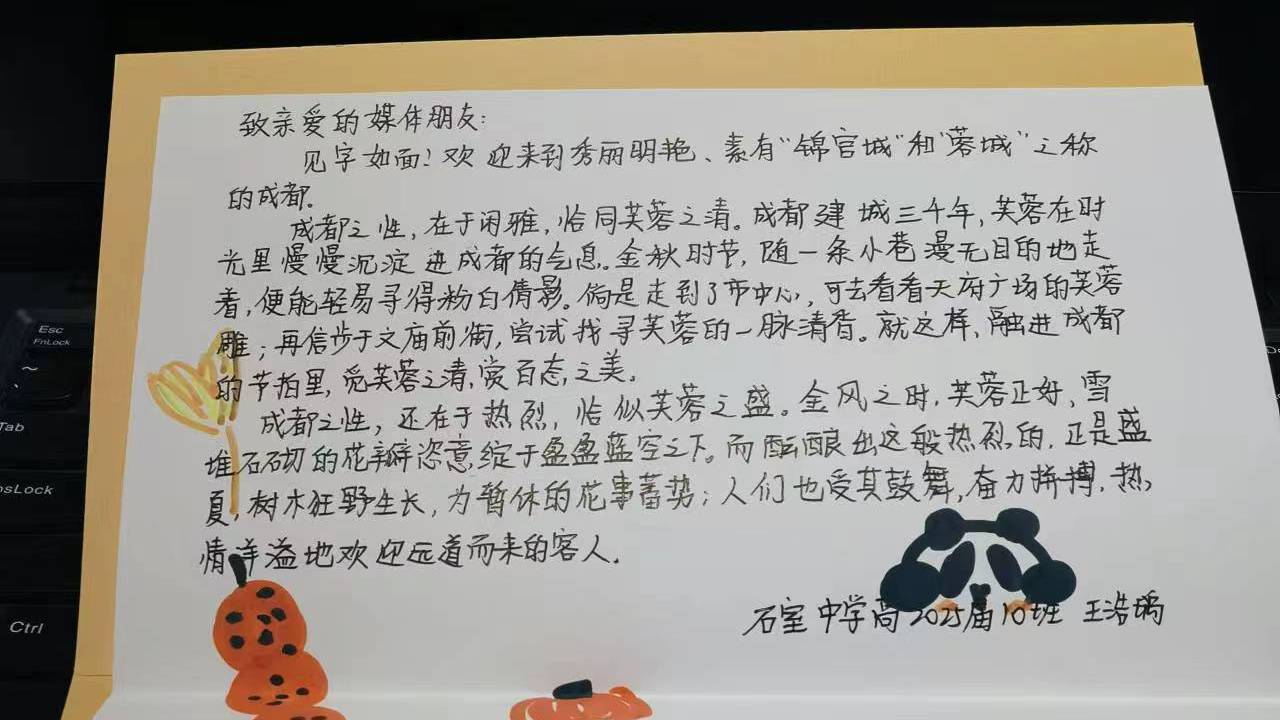 致亲爱的媒体朋友:
见字如面!欢迎来到秀丽明艳、素有"锦官城"和"蓉城"之称
的成都。
成都之性,在于闲雅,恰同芙蓉之清。成都建城三千年,芙蓉在时
光里慢慢沉淀进成都的气息。金秋时节,随一条小巷漫无目的地走
着,便能轻易寻得粉白倩影。倘是走到了市中心,可去看看天府广场的芙蓉
雕;再信步于文庙前街,尝试找寻芙蓉的一脉清香。就这样,融进成都
的节拍里,觉芙蓉之清,赏百态之美。
成都之性,还在于热烈,恰似芙蓉之盛。金风之时,芙蓉正好,雪
堆石砌的花瓣恣意绽于盈盈蓝空之下。而酝酿出这般热烈的,正是盛
夏,树木狂野生长,为暂休的花事蓄势;人们也受其鼓舞,奋力拼搏,热
情洋溢地欢迎远道而来的客人。
石室中学高2025届10班 王浩
Esc
FnLock
Tab
psLock
Ctrl